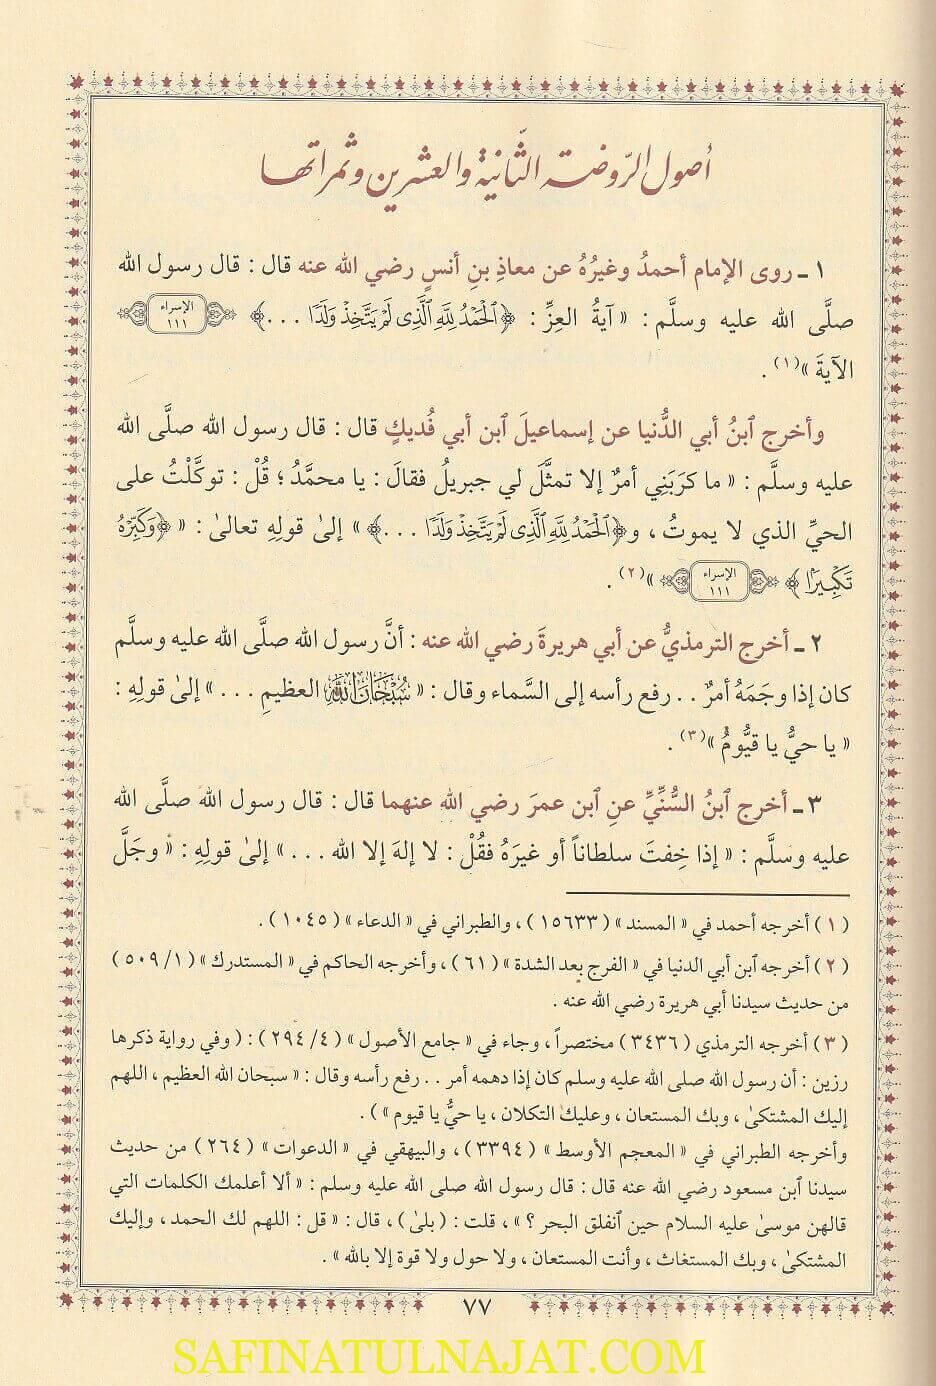 أصول الرّوضة الثّانية والعشرين وثمراتها
١ ـ روى الإمام أحمدُ وغيرُهُ عن معاذِ بنِ أنسٍ رضي الله عنه قال : قال رسول الله
صلَّى الله عليه وسلَّم : « آيةُ العِزِّ : ﴿ٱلْحَمْدُ لِلَّهِ ٱلَّذِى لَمْ يَتَّخِذْ وَلَدًا ...﴾ الإسراء ١١١
الآيةَ »(١) .
وأخرج ٱبنُ أبي الدُّنيا عن إسماعيلَ ٱبن أبي فُديكٍ قال : قال رسول الله صلَّى الله
عليه وسلَّم : « ما كَرَبَنِي أمرٌ إلا تمثَّلَ لي جبريلُ فقالَ : يا محمَّدُ ؛ قُلْ : توكَّلْتُ على
الحيِّ الذي لا يموتُ ، و﴿ٱلْحَمْدُ لِلَّهِ ٱلَّذِى لَمْ يَتَّخِذْ وَلَدًا ...﴾ » إلىٰ قولِهِ تعالىٰ : « ﴿وَكَبِّرْهُ
تَكْبِيرًا﴾ الإسراء ١١١ »(٢) .
٢ ـ أخرج الترمذيُّ عن أبي هريرةَ رضي الله عنه : أنَّ رسول الله صلَّى الله عليه وسلَّم
كان إذا وجَمَهُ أمرٌ . . رفع رأسه إلى السَّماء وقال : « سُبْحَانَ اللَّهِ العظيمِ . . . » إلىٰ قولِهِ :
« يا حيُّ يا قيُّومُ »(٣) .
٣ ـ أخرج ٱبنُ السُّنِّيِّ عنِ ٱبن عمرَ رضي الله عنهما قال : قال رسول الله صلَّى الله
عليه وسلَّم : « إذا خِفتَ سلطاناً أو غيرَهُ فقُلْ : لا إلهَ إلا الله . . . » إلىٰ قولِهِ : « وجَلَّ
(١) أخرجه أحمد في « المسند » (١٥٦٣٣) ، والطبراني في « الدعاء » (١٠٤٥) .
(٢) أخرجه ٱبن أبي الدنيا في « الفرج بعد الشدة » (٦١) ، وأخرجه الحاكم في « المستدرك » (١/ ٥٠٩)
من حديث سيدنا أبي هريرة رضي الله عنه .
(٣) أخرجه الترمذي (٣٤٣٦) مختصراً ، وجاء في « جامع الأصول » (٤/ ٢٩٤) : (وفي رواية ذكرها
رزين : أن رسول الله صلى الله عليه وسلم كان إذا دهمه أمر . . رفع رأسه وقال : « سبحان الله العظيم ، اللهم
إليك المشتكىٰ ، وبك المستعان ، وعليك التكلان ، يا حيُّ يا قيوم » ) .
وأخرجه الطبراني في « المعجم الأوسط » (٣٣٩٤) ، والبيهقي في « الدعوات » (٢٦٤) من حديث
سيدنا ٱبن مسعود رضي الله عنه قال : قال رسول الله صلى الله عليه وسلم : « ألا أعلمك الكلمات التي
قالهن موسىٰ عليه السلام حين ٱنفلق البحر ؟ » ، قلت : (بلىٰ) ، قال : « قل : اللهم لك الحمد ، وإليك
المشتكىٰ ، وبك المستغاث ، وأنت المستعان ، ولا حول ولا قوة إلا بالله » .
٧٧
SAFINATULNAJAT.COM